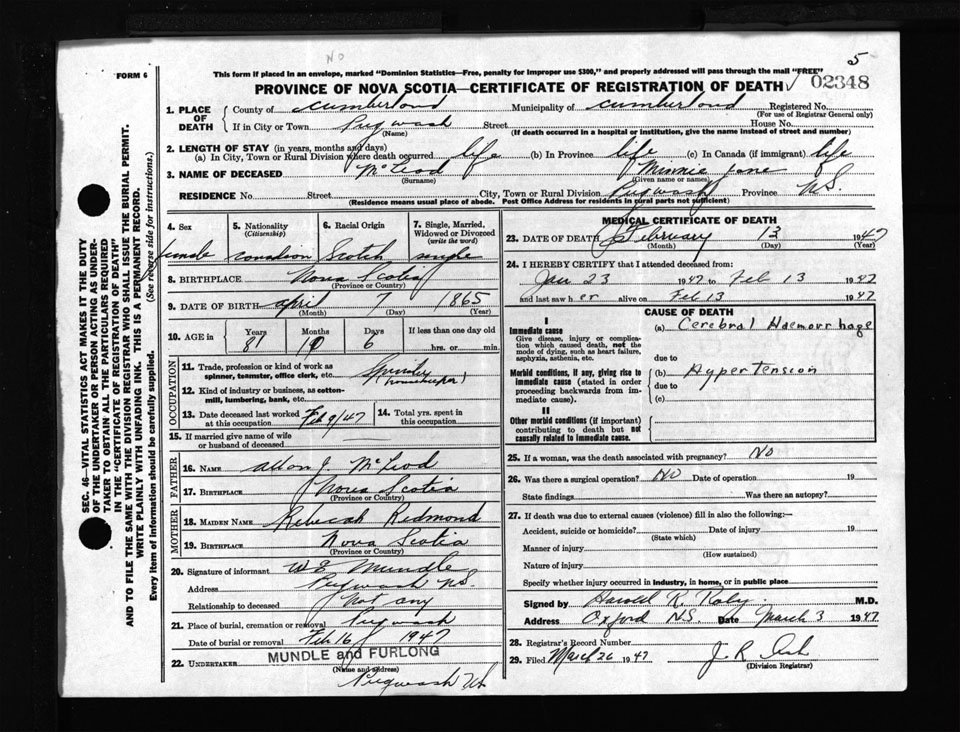 No
5
FORM 6
This form if placed in an envelope, marked "Dominion Statistics—Free, penalty for improper use $300," and properly addressed will pass through the mail "FREE"
PROVINCE OF NOVA SCOTIA—CERTIFICATE OF REGISTRATION OF DEATH 02348
1. PLACE OF DEATH County of Cumberland Municipality of Cumberland Registered No.
(For use of Registrar General only)
If in City or Town Pugwash Street House No.
(Name) (If death occurred in a hospital or institution, give the name instead of street and number)
2. LENGTH OF STAY (in years, months and days)
(a) In City, Town or Rural Division where death occurred life (b) In Province life (c) In Canada (if immigrant) life
3. NAME OF DECEASED McLeod Minnie Jane
(Given name or names)
RESIDENCE No. Street City, Town or Rural Division Pugwash Province N.S.
(Residence means usual place of abode. Post Office Address for residents in rural parts not sufficient)
4. Sex 5. Nationality 6. Racial Origin 7. Single, Married,
(Citizenship) Widowed or Divorced
(write the word)
female canadian Scotch single
8. BIRTHPLACE Nova Scotia
(Province or Country)
9. DATE OF BIRTH april 7 1865
(Month) (Day) (Year)
10. AGE in Years Months Days If less than one day old
81 10 6 hrs. or min.
OCCUPATION
11. Trade, profession or kind of work as
spinner, teamster, office clerk, etc. Spinster
(housekeeper)
12. Kind of industry or business, as cotton-
mill, lumbering, bank, etc.
13. Date deceased last worked at this occupation Feb 9/47 14. Total yrs. spent in this occupation
15. If married give name of wife
or husband of deceased
FATHER
16. NAME allan J. McLeod
17. BIRTHPLACE Nova Scotia
(Province or Country)
MOTHER
18. MAIDEN NAME Rebecah Redmond
19. BIRTHPLACE Nova Scotia
(Province or Country)
20. Signature of informant W E Mundle
Address Pugwash N.S.
Relationship to deceased Not any
21. Place of burial, cremation or removal Pugwash
Date of burial or removal Feb 16 1947
22. UNDERTAKER MUNDLE and FURLONG
(Name and address)
Pugwash
MEDICAL CERTIFICATE OF DEATH
23. DATE OF DEATH February 13 1947
(Month) (Day) (Year)
24. I HEREBY CERTIFY that I attended deceased from:
Jan 23 1947 to Feb 13 1947
and last saw her alive on Feb 13 1947
CAUSE OF DEATH
I
Immediate cause (a) Cerebral Haemorrhage
Give disease, injury or complica-
tion which caused death, not the
mode of dying, such as heart failure,
asphyxia, asthenia, etc. due to
Morbid conditions, if any, giving rise to
immediate cause (stated in order
proceeding backwards from
immediate cause). (b) Hypertension
due to
(c)
II
Other morbid conditions (if important)
contributing to death but not
causally related to immediate cause.
25. If a woman, was the death associated with pregnancy? No
26. Was there a surgical operation? No Date of operation 19
State findings Was there an autopsy?
27. If death was due to external causes (violence) fill in also the following:—
Accident, suicide or homicide? Date of injury 19
(State which)
Manner of injury
(How sustained)
Nature of injury
Specify whether injury occurred in industry, in home, or in public place
Signed by Harold R. Roby M.D.
Address Oxford N.S. Date March 3 1947
28. Registrar's Record Number
29. Filed March 26 1947 J R
(Division Registrar)
SEC. 46—VITAL STATISTICS ACT MAKES IT THE DUTY
OF THE UNDERTAKER OR PERSON ACTING AS UNDER-
TAKER TO OBTAIN ALL THE PARTICULARS REQUIRED
IN THE "CERTIFICATE OF REGISTRATION OF DEATH"
AND TO FILE THE SAME WITH THE DIVISION REGISTRAR WHO SHALL ISSUE THE BURIAL PERMIT.
WRITE PLAINLY WITH UNFADING INK. THIS IS A PERMANENT RECORD.
Every item of information should be carefully supplied. (See reverse side for instructions.)